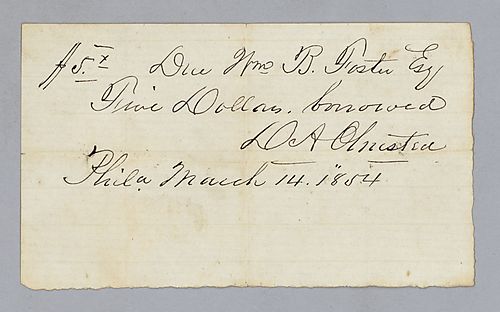 $5.x Due Wm B. Foster Esq
Five Dollars. borrowed
D A Olmsted
Phila March 14. 1854